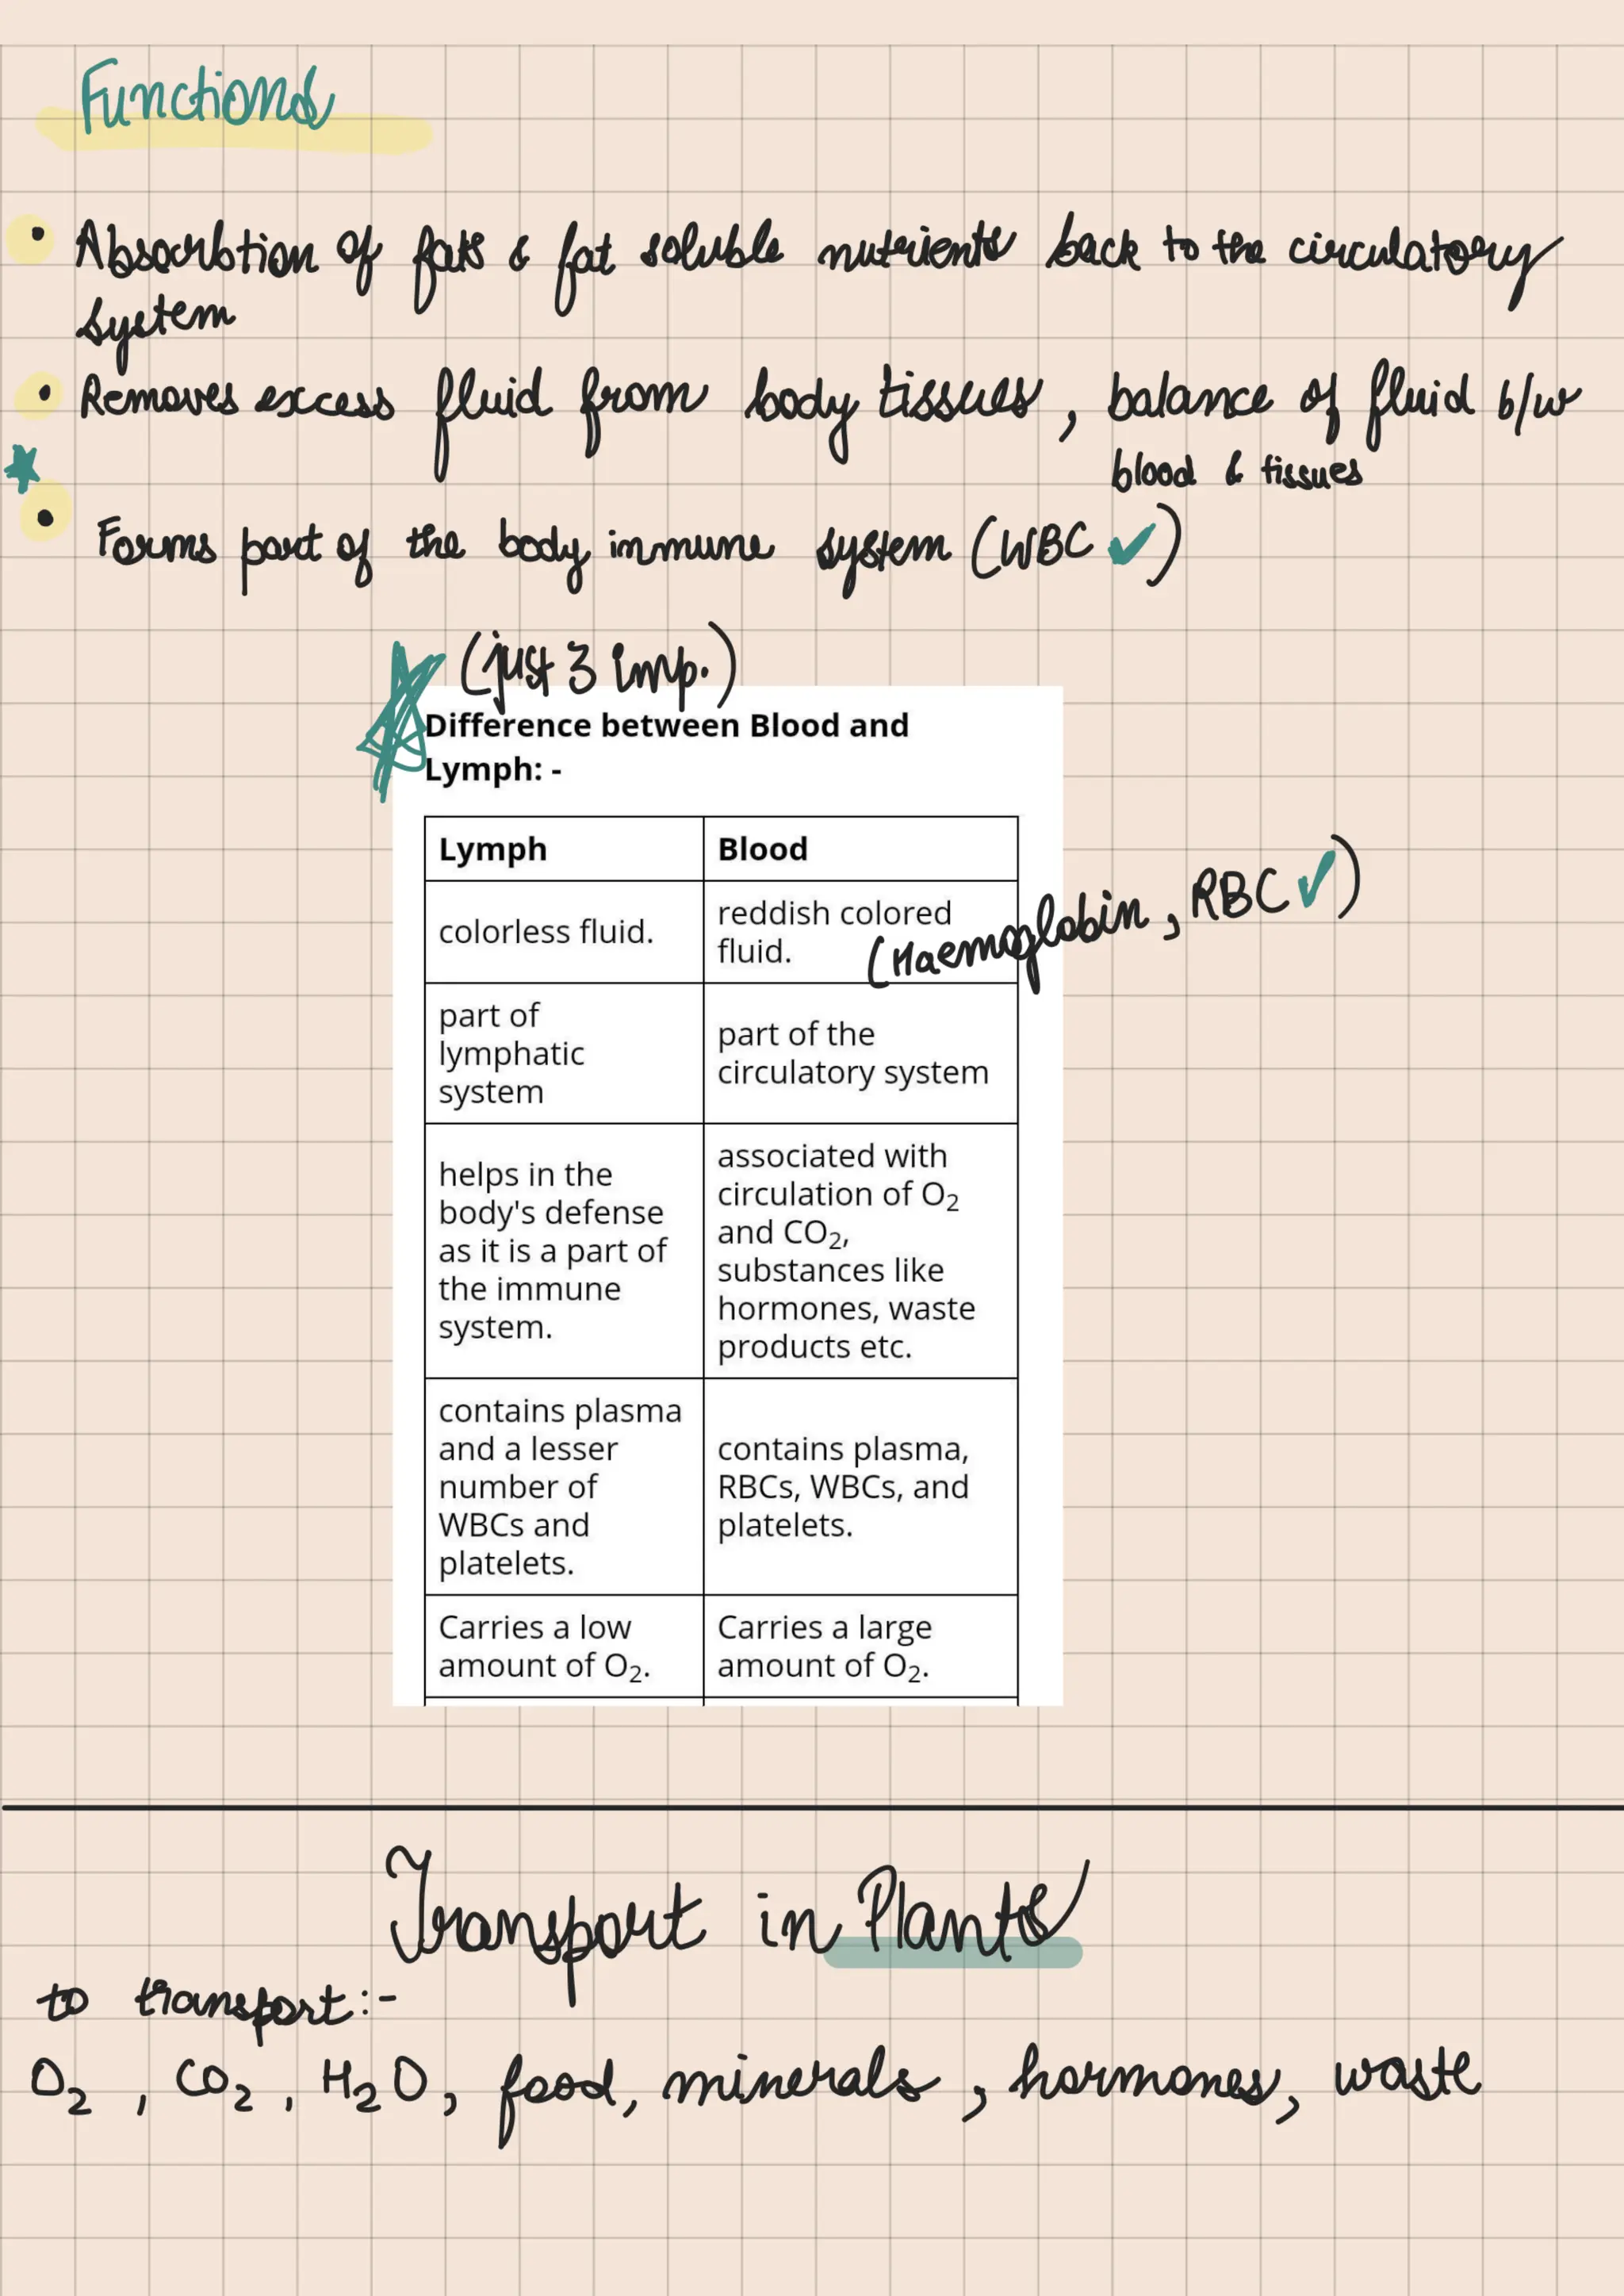 Functions
• Absorbtion of fats & fat soluble nutrients back to the circulatory
system
• Removes excess fluid from body tissues, balance of fluid b/w
blood & tissues
• Forms part of the body immune system (WBC ✓)
(just 3 imp.)
Difference between Blood and
Lymph: -
Lymph
Blood
colorless fluid.
reddish colored
fluid.
(Haemoglobin, RBC ✓)
part of
lymphatic
system
part of the
circulatory system
helps in the
body's defense
as it is a part of
the immune
system.
associated with
circulation of O₂
and CO₂,
substances like
hormones, waste
products etc.
contains plasma
and a lesser
number of
WBCs and
platelets.
contains plasma,
RBCs, WBCs, and
platelets.
Carries a low
amount of O₂.
Carries a large
amount of O₂.
Transport in Plants
to transport:-
O₂, CO₂, H₂O, food, minerals, hormones, waste